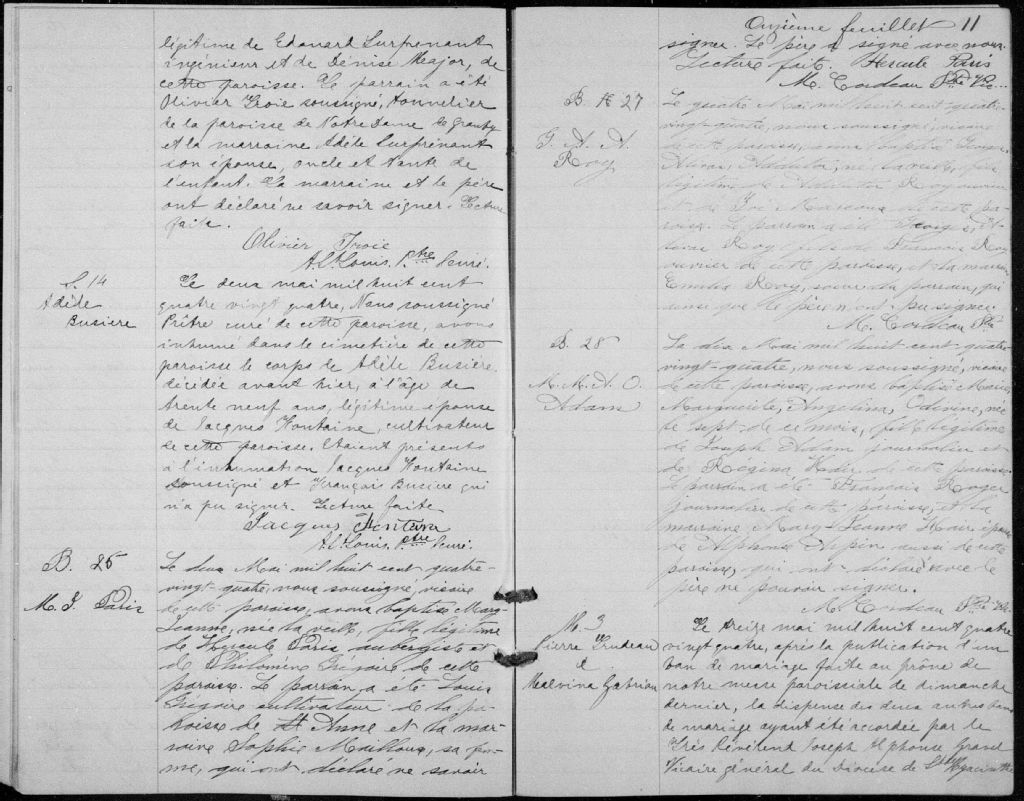 légitime de Edouard Surprenant
ingénieur et de Denise Major, de
cette paroisse. Le parrain a été
Olivier Troie soussigné, tonnelier
de la paroisse de Notre Dame de Granby
et la marraine Adèle Surprenant
son épouse, oncle et tante de
l'enfant. La marraine et le père
ont déclaré ne savoir signer. Lecture
faite.
Olivier Troie
A. St. Louis, Ptre Curé.
S. 14
Adèle
Busiere
Le deux mai mil huit cent
quatre vingt quatre, Nous soussigné
Prêtre curé de cette paroisse, avons
inhumé dans le cimetière de cette
paroisse le corps de Adèle Busière,
décédée avant hier, à l'âge de
trente neuf ans, légitime épouse
de Jacques Fontaine, cultivateur
de cette paroisse. Etaient présents
à l'inhumation Jacques Fontaine
soussigné et François Busiere qui
n'a pu signer. Lecture faite
Jacques Fontain
A. St. Louis, Ptre Curé.
B. 26
M. J. Paris
Le deux Mai mil huit cent quatre-
vingt-quatre, nous soussigné, vicaire
de cette paroisse, avons baptisé Mary
Jeanne, née la veille, fille légitime
de Hercule Paris aubergiste et
de Philomène Grégoire de cette
paroisse. Le parrain a été Louis
Grégoire cultivateur de la pa-
roisse de St Anne et la mar-
raine Sophie Mailloux, sa fem-
me, qui ont déclaré ne savoir
Onzième feuillet 11
signer. Le père a signé avec nous.
Lecture faite. Hercule Paris
M. Cordeau Ptre Vic.
B. 27
G. A. A.
Roy
Le quatre Mai mil huit cent quatre-
vingt-quatre, nous soussigné, vicaire
de cette paroisse, avons baptisé
né la veille, fils
légitime de Roy ouvrier
et de de cette pa-
roisse. Le parrain a été
Roy, fils de François Roy
ouvrier de cette paroisse, et la marraine
Emélie Roy, soeur du parrain, qui
ainsi que le père n'ont pu signer.
M. Cordeau Ptre
B. 28
M. M. A. O.
Adam
Le dix Mai mil huit cent quatre-
vingt-quatre, nous soussigné, vicaire
de cette paroisse, avons baptisé Marie
Marguerite, Angelina, Odivine, née
le sept de ce mois, fille légitime
de Joseph Adam journalier et
de Regina de cette paroisse.
Le parrain a été François Roger
journalier de cette paroisse, et la
marraine Mary Jeanne épouse
de Alphonse aussi de cette
paroisse, qui ont déclaré avec le
père ne pouvoir signer.
M. Cordeau Ptre Vic.
M. 3
Pierre Trudeau
&
Malvina Gatrian
Le treize mai mil huit cent quatre
vingt quatre, après la publication d'un
ban de mariage faite au prône de
notre messe paroissiale de dimanche
dernier, la dispense des deux autres bans
de mariage ayant été accordée par le
Très Révérend Joseph Alphonse Gravel
Vicaire général du Diocèse de St Hyacinthe